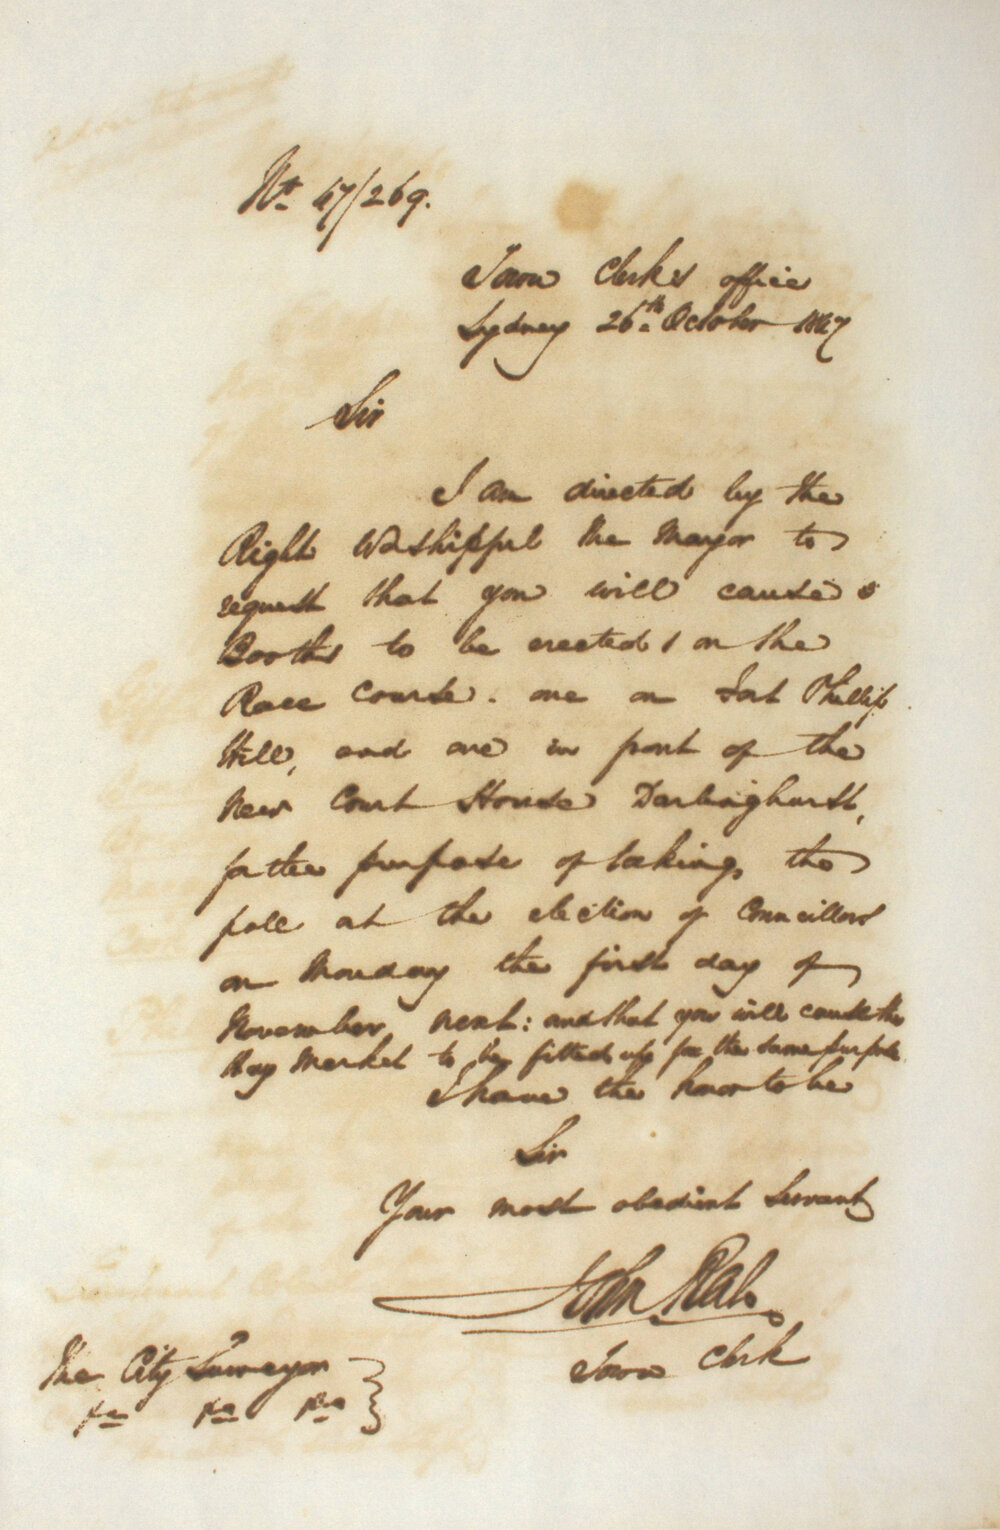 No. 47/269.
Town Clerk's office
Sydney 26th October 1847
Sir
I am directed by the
Right Worshipful the Mayor to
request that you will cause 3
Booths to be erected 1 on the
Race Course. one on Fort Phillip
Hill, and one in front of the
New Court House Darlinghurst,
for the purpose of taking the
poll at the election of Councillors
on Monday the first day of
November next: and that you will cause the
Hay Market to be fitted up for the same purpose
I have the honor to be
Sir
Your most obedient Servant
John Rae
Town Clerk
The City Surveyor